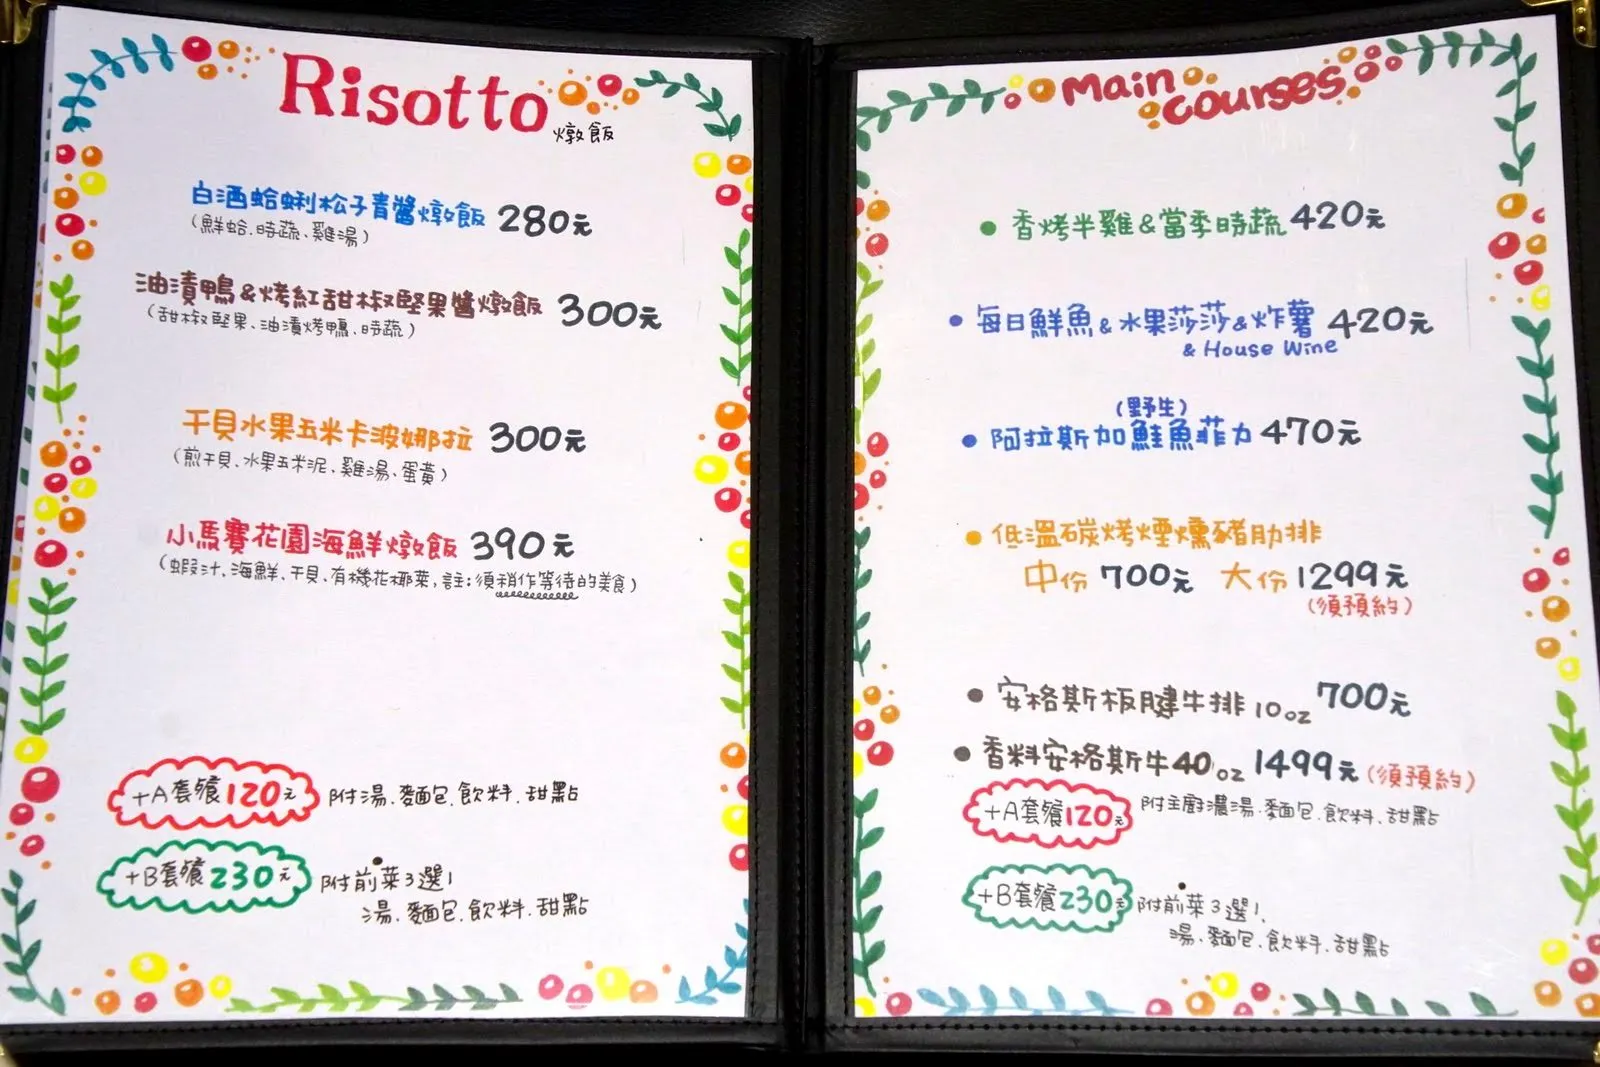 Risotto
燉飯
白酒蛤蜊松子青醬燉飯 280元
(鮮蛤.時蔬、雞湯)
油漬鴨&烤紅甜椒堅果醬燉飯 300元
(甜椒堅果、油漬烤鴨、時蔬)
干貝水果玉米卡波娜拉 300元
(煎干貝、水果玉米泥、雞湯、蛋黃)
小馬賽花園海鮮燉飯 390元
(蝦汁、海鮮、干貝、有機花椰菜, 註:須稍作等待的美食)
+A套餐120元 附湯、麵包、飲料、甜點
+B套餐230元 附前菜3選1
湯、麵包、飲料、甜點
Main
courses
香烤半雞&當季時蔬 420元
每日鮮魚&水果莎莎&炸薯 420元
& House Wine
(野生)
阿拉斯加鮭魚菲力 470元
低溫碳烤煙燻豬肋排
中份 700元 大份 1299元
(須預約)
安格斯板腱牛排 10oz 700元
香料安格斯牛40oz 1499元 (須預約)
+A套餐120元 附主廚濃湯.麵包.飲料.甜點
+B套餐230元 附前菜3選1.
湯、麵包.飲料.甜點